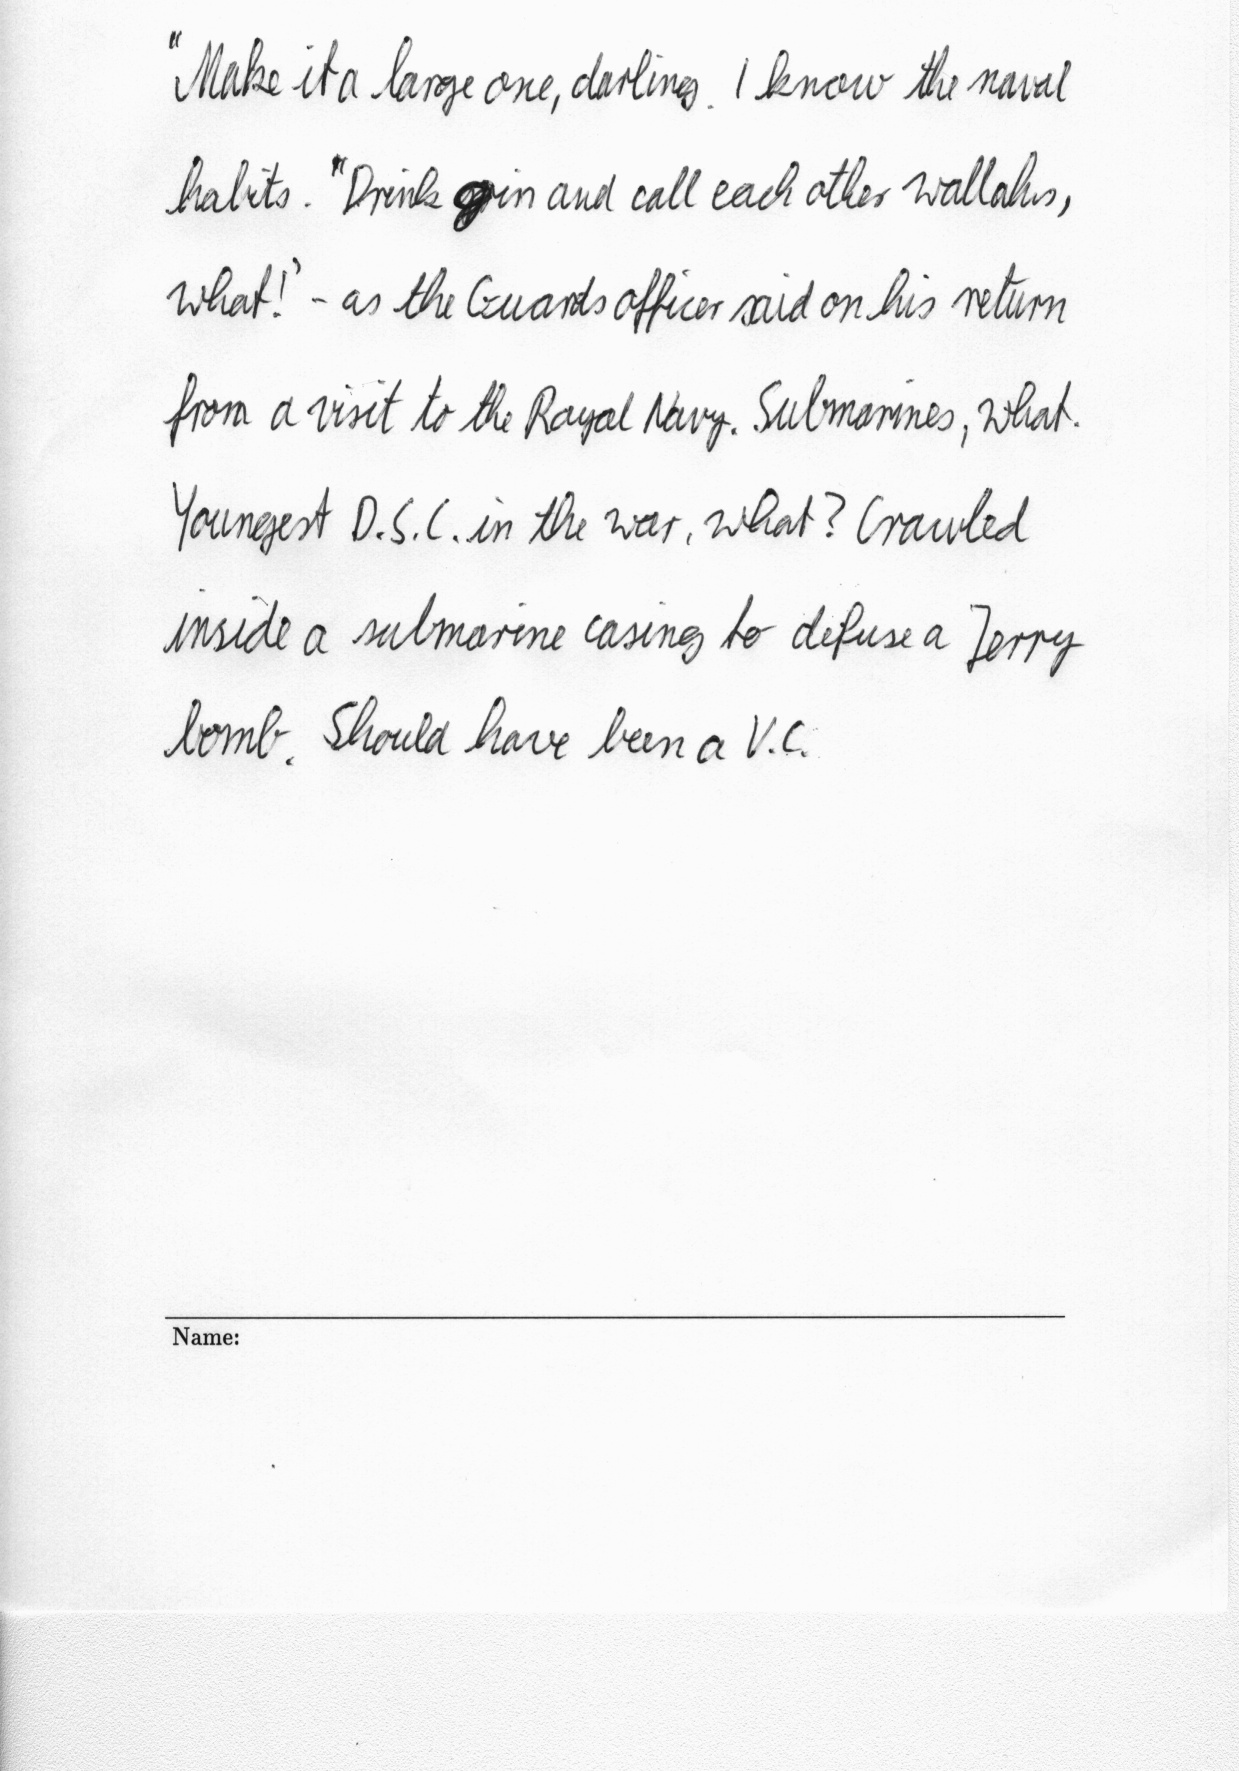 "Make it a large one, darling. I know the naval
habits. "Drink gin and call each other wallahs,
what!' - as the Guards officer said on his return
from a visit to the Royal Navy. Submarines, what.
Youngest D.S.C. in the war, what? Crawled
inside a submarine casing to defuse a Jerry
bomb. Should have been a V.C.
Name: